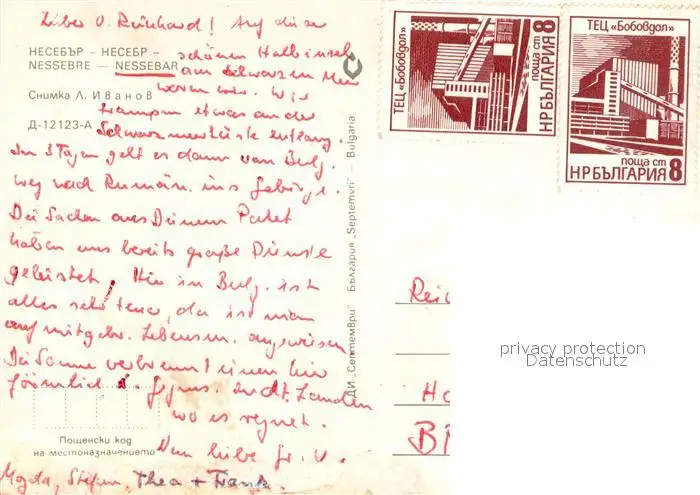 Lieber O. Reinhard! Auf dieser
schönen Halbinsel
am Schwarzen Meer
waren wir. Wir
trampen etwas an der
Schwarzmeerküste entlang.
In 3 Tagen geht es dann von Bulg.
weg nach Rumän. ins Gebirge.
Die Sachen aus Deinem Paket
haben uns bereits große Dienste
geleistet. Hier in Bulg. ist
alles sehr teuer, da ist man
auf mitgebr. Lebensm. angewiesen
Die Sonne verbrennt einen hier
förmlich
wo es regnet.
Nun liebe Gr. v.
Magda, Stefan, Thea + Frank.
НЕСЕБЪР – НЕСЕБР –
NESSEBRE – NESSEBAR
Снимка Л. Иванов
Д-12123-А
Пощенски код
на местоназначението
ДИ „Септември" България „Septemvri" – Bulgaria
ТЕЦ „Бобовдол"
поща ст 8
НР БЪЛГАРИЯ
ТЕЦ „Бобовдол"
поща ст 8
НР БЪЛГАРИЯ
Rei
Ha
privacy protection
Datenschutz